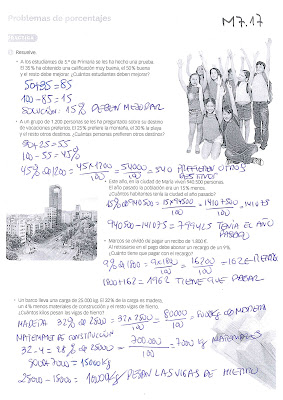 Problemas de porcentajes
M7.17
PRACTICA
Resuelve.
• A los estudiantes de 5º de Primaria se les ha hecho una prueba.
El 35% ha obtenido una calificación muy buena, el 50% buena
y el resto debe mejorar. ¿Cuántos estudiantes deben mejorar?
50+35=85
100-85=15
SOLUCIÓN: 15% DEBEN MEJORAR
• A un grupo de 1.200 personas se les ha preguntado sobre su destino
de vacaciones preferido. El 25% prefiere la montaña, el 30% la playa
y el resto otros destinos. ¿Cuántas personas prefieren otros destinos?
100-55=45%
45% de 1200 = 45x1200/100 = 54000/100 = 540 PREFIEREN OTROS DESTINOS
• Este año, en la ciudad de María viven 940.500 personas.
El año pasado la población era un 15% menos.
¿Cuántos habitantes tenía la ciudad el año pasado?
940500-141075=799425 TENÍA EL AÑO PASADO
• Marcos se olvidó de pagar un recibo de 1.800 €.
Al retrasarse en el pago debe abonar un recargo de un 9%.
¿Cuánto tiene que pagar con el recargo?
9% de 1800 = 9x1800/100 = 16200/100 = 162€
1800+162=1962 TIENE QUE PAGAR
• Un barco lleva una carga de 25.000 kg. El 32% de la carga es madera,
un 4% menos materiales de construcción y el resto vigas de hierro.
¿Cuántos kilos pesan las vigas de hierro?
MADERA 32% de 25000 = 32x25000/100 =
MATERIALES DE CONSTRUCCIÓN
25000-15000=10000 Kg PESAN LAS VIGAS DE HIERRO